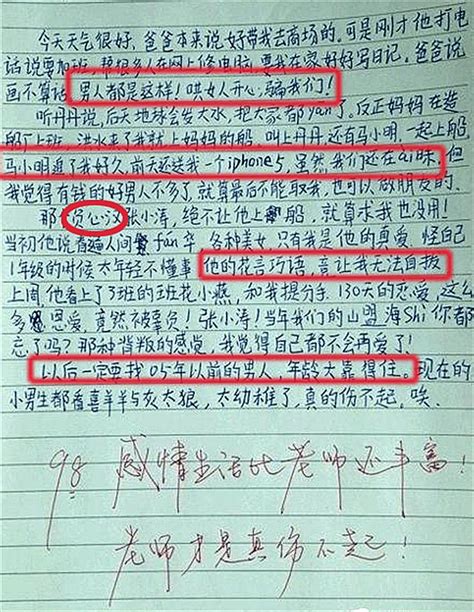 今天天气很好，爸爸本来说好带我去商场的，可是刚才他打电
话说要加班，帮很多人在网上修电脑，要我在家好好写日记，爸爸说
画不算话，男人都是这样！哄女人开心，骗我们！
听丹丹说，后天地球会发大水，把大家都yan了。反正妈妈在造
船厂上班，洪水来了我就上妈妈的船，叫上丹丹，还有马小明，一起上船
马小明追了我好久，前天还送我一个iphone5，虽然我们还在ai昧，但
我觉得有钱的好男人不多了，就算最后不能取我，也可以做朋友的。
那个负心汉张小涛，绝不让他上船，就算求我也没用！
当初他说看遍人间fan华，各种美女，只有我是他的真爱，怪自己
1年级的时候太年轻不懂事，他的花言巧语，竟让我无法自拔
上周，他看上了3班的班花小燕，和我提分手，130天的恋爱，这么
多恩爱，竟然被辜负！张小涛！当年我们的山盟海Shi你都
忘了吗？那种背叛的感觉，我觉得自己都不会再爱了！
以后一定要找05年以前的男人，年龄大靠得住。现在的
小男生都看喜羊羊与灰太狼，太幼稚了，真的伤不起。唉
98 感情生活比老师还丰富！
老师才是真伤不起！